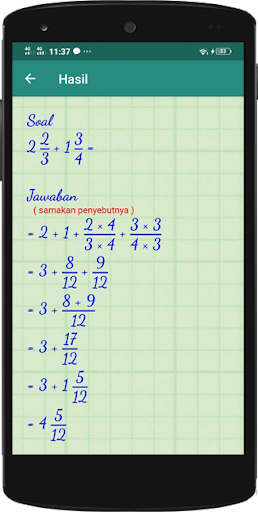 4G 4G 11:37
Hasil
Soal
2 2/3 + 1 3/4 =
Jawaban
( samakan penyebutnya )
= 2 + 1 + (2 × 4)/(3 × 4) + (3 × 3)/(4 × 3)
= 3 + 8/12 + 9/12
= 3 + (8 + 9)/12
= 3 + 17/12
= 3 + 1 5/12
= 4 5/12